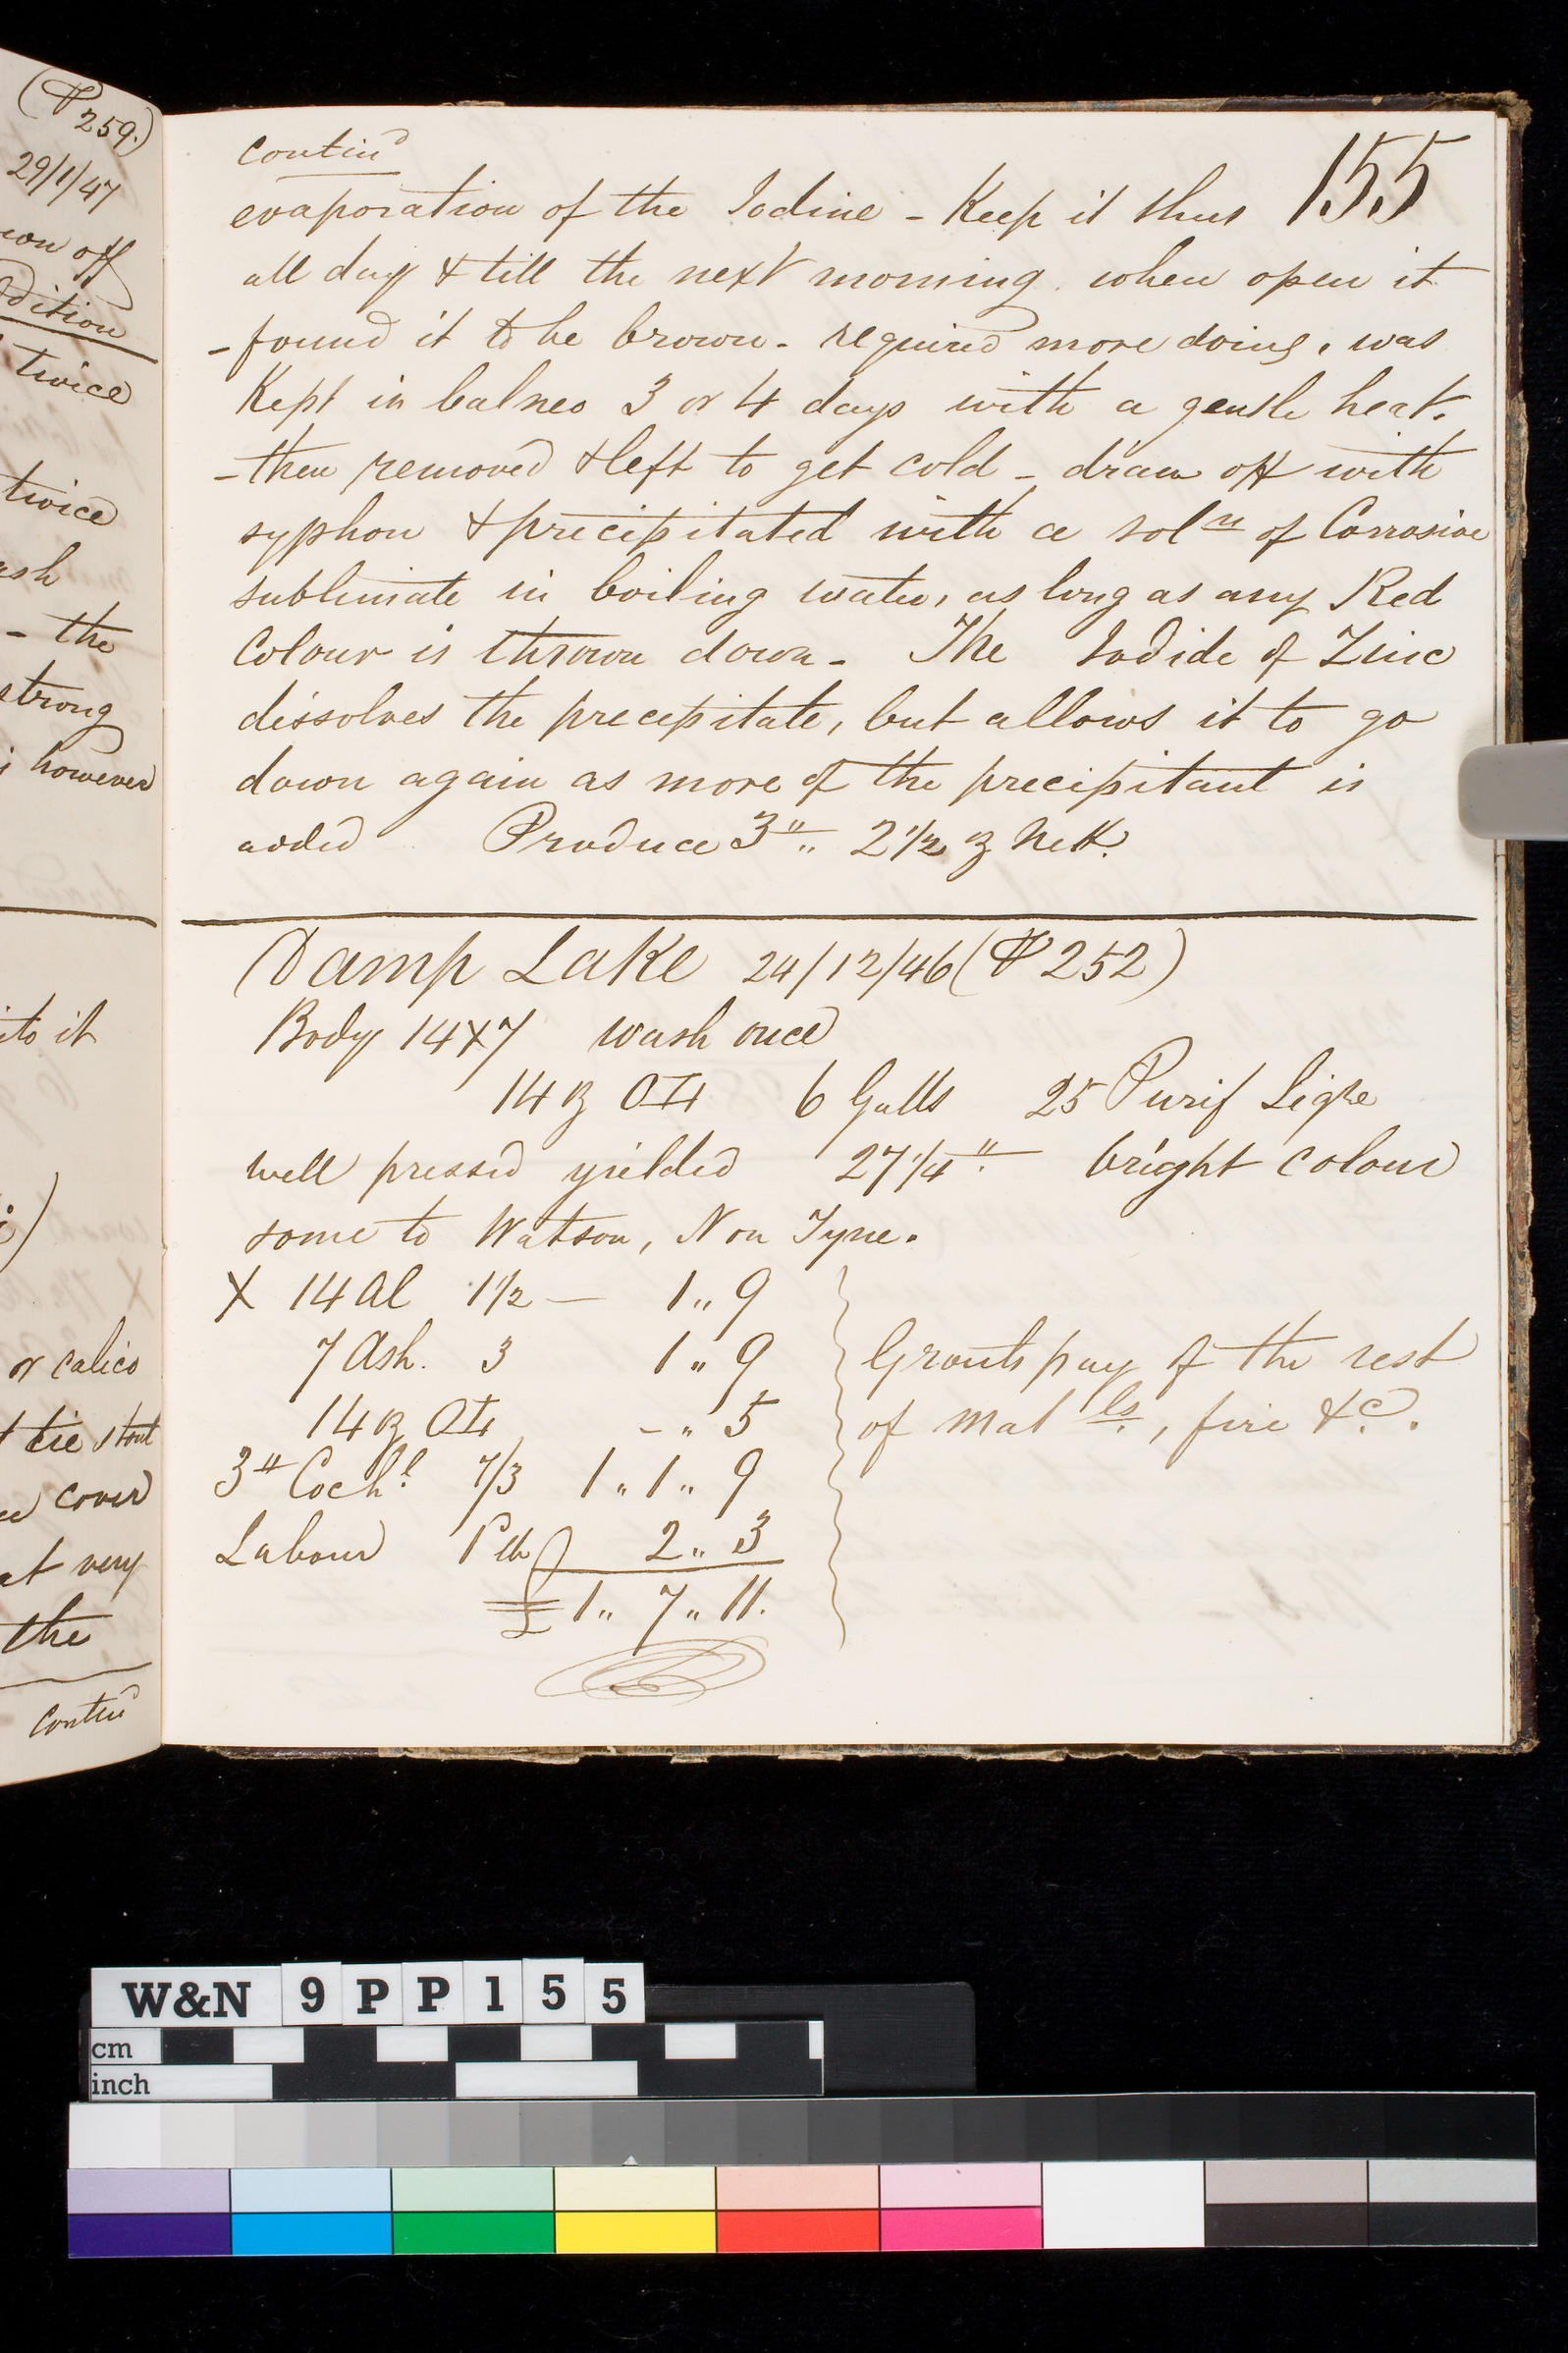 (P 259.)
29/1/47
ion off
dition
twice
twice
ash
- the
strong
however
ito it
or calico
tie stout
cover
at very
the
Contin^d
contin^d
155
evaporation of the Iodine - Keep it thus
all day & till the next morning. when open it
- found it to be brown - required more doing, was
Kept in balneo 3 or 4 days with a gentle heat.
- then removed & left to get cold - draw off with
syphon & precipitated with a sol^n of Corrosive
sublimate in boiling water, as long as any Red
Colour is thrown down - The Iodide of Zinc
dissolves the precipitate, but allows it to go
down again as more of the precipitant is
added Produce 3^lb ,, 2 1/2 oz nett.
Damp Lake 24/12/46 (P 252)
Body 14 x 7 wash once
14 oz 6 Galls 25 Purif Liqre
well pressed yielded 27 1/4 ^lb bright colour
some to Watson, N on Tyne.
X 14 Al 1 1/2 — 1 ,, 9
7 Ash. 3 1 ,, 9
14 oz - ,, 5
3^lb Coch^l 7/3 1 ,, 1 ,, 9
Labour P lb 2 ,, 3
£ 1 ,, 7 ,, 11.
Grounds pay for the rest
of mat^ls., fire &c.
W&N 9PP155
cm
inch